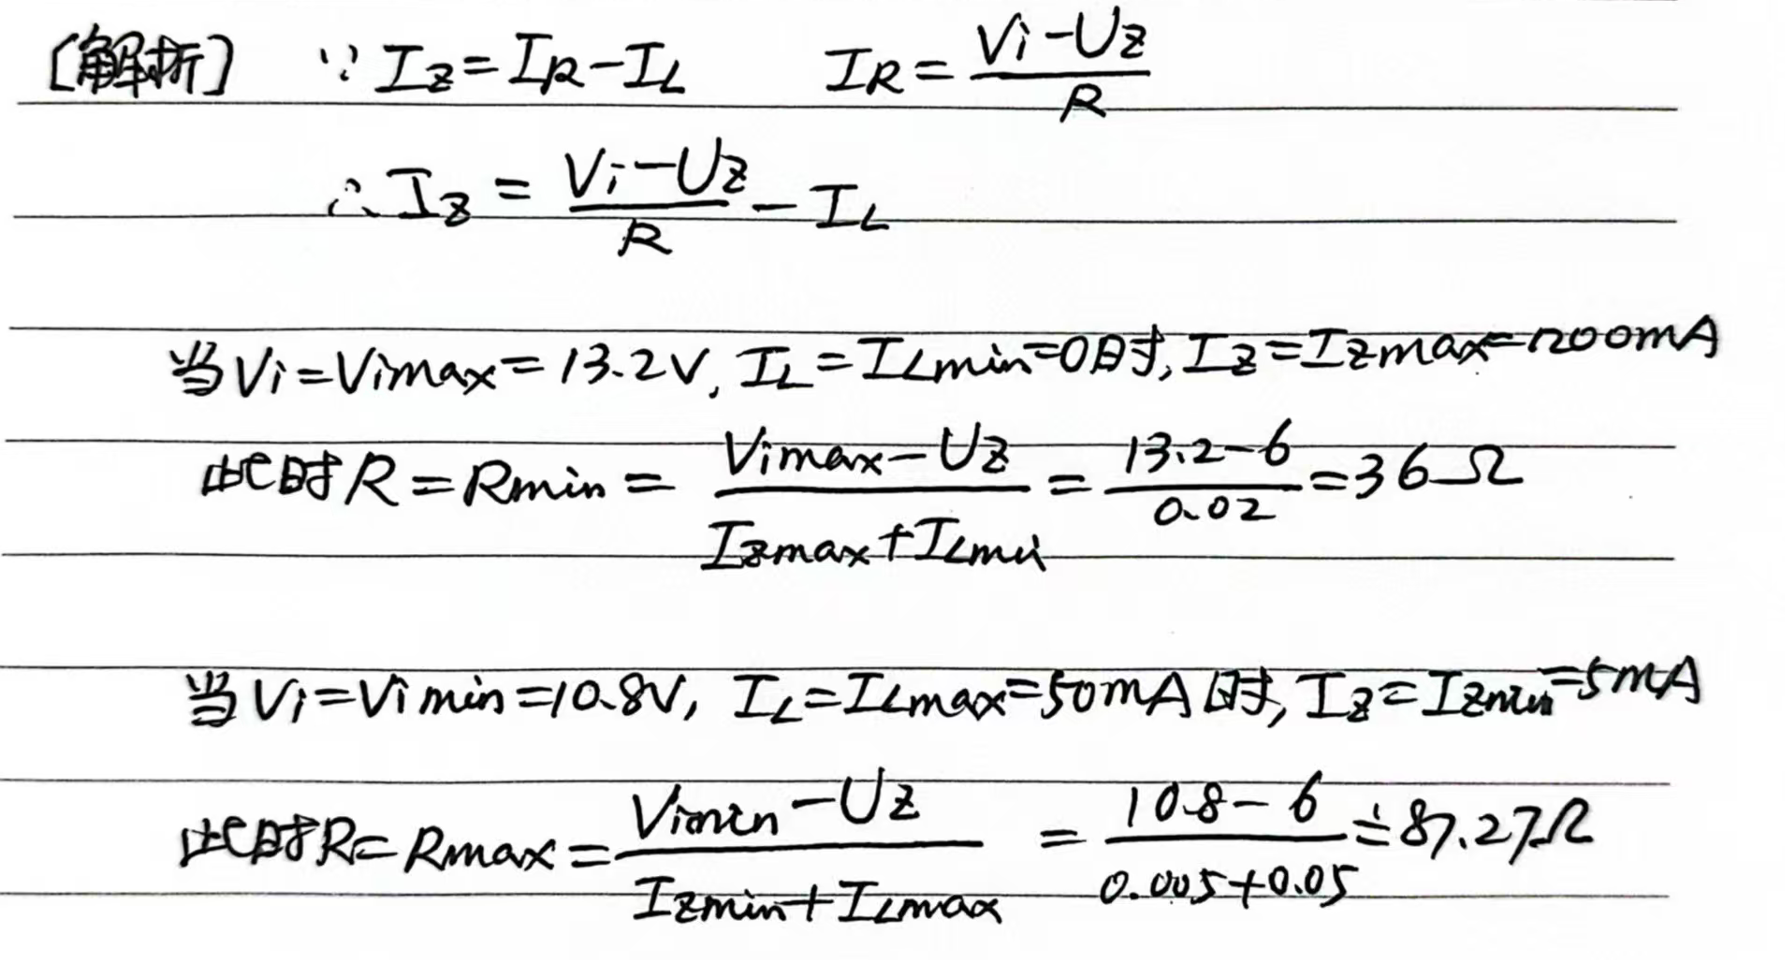 [解析] ∵ Iz=IR-IL IR=(Vi-Uz)/R
∴ Iz=(Vi-Uz)/R-IL
当Vi=Vimax=13.2V, IL=ILmin=0时, Iz=Izmax=200mA
此时R=Rmin=(Vimax-Uz)/(Izmax+ILmin)=(13.2-6)/0.02=36Ω
当Vi=Vimin=10.8V, IL=ILmax=50mA时, Iz=Izmin=5mA
此时R=Rmax=(Vimin-Uz)/(Izmin+ILmax)=(10.8-6)/(0.005+0.05)≐87.27Ω